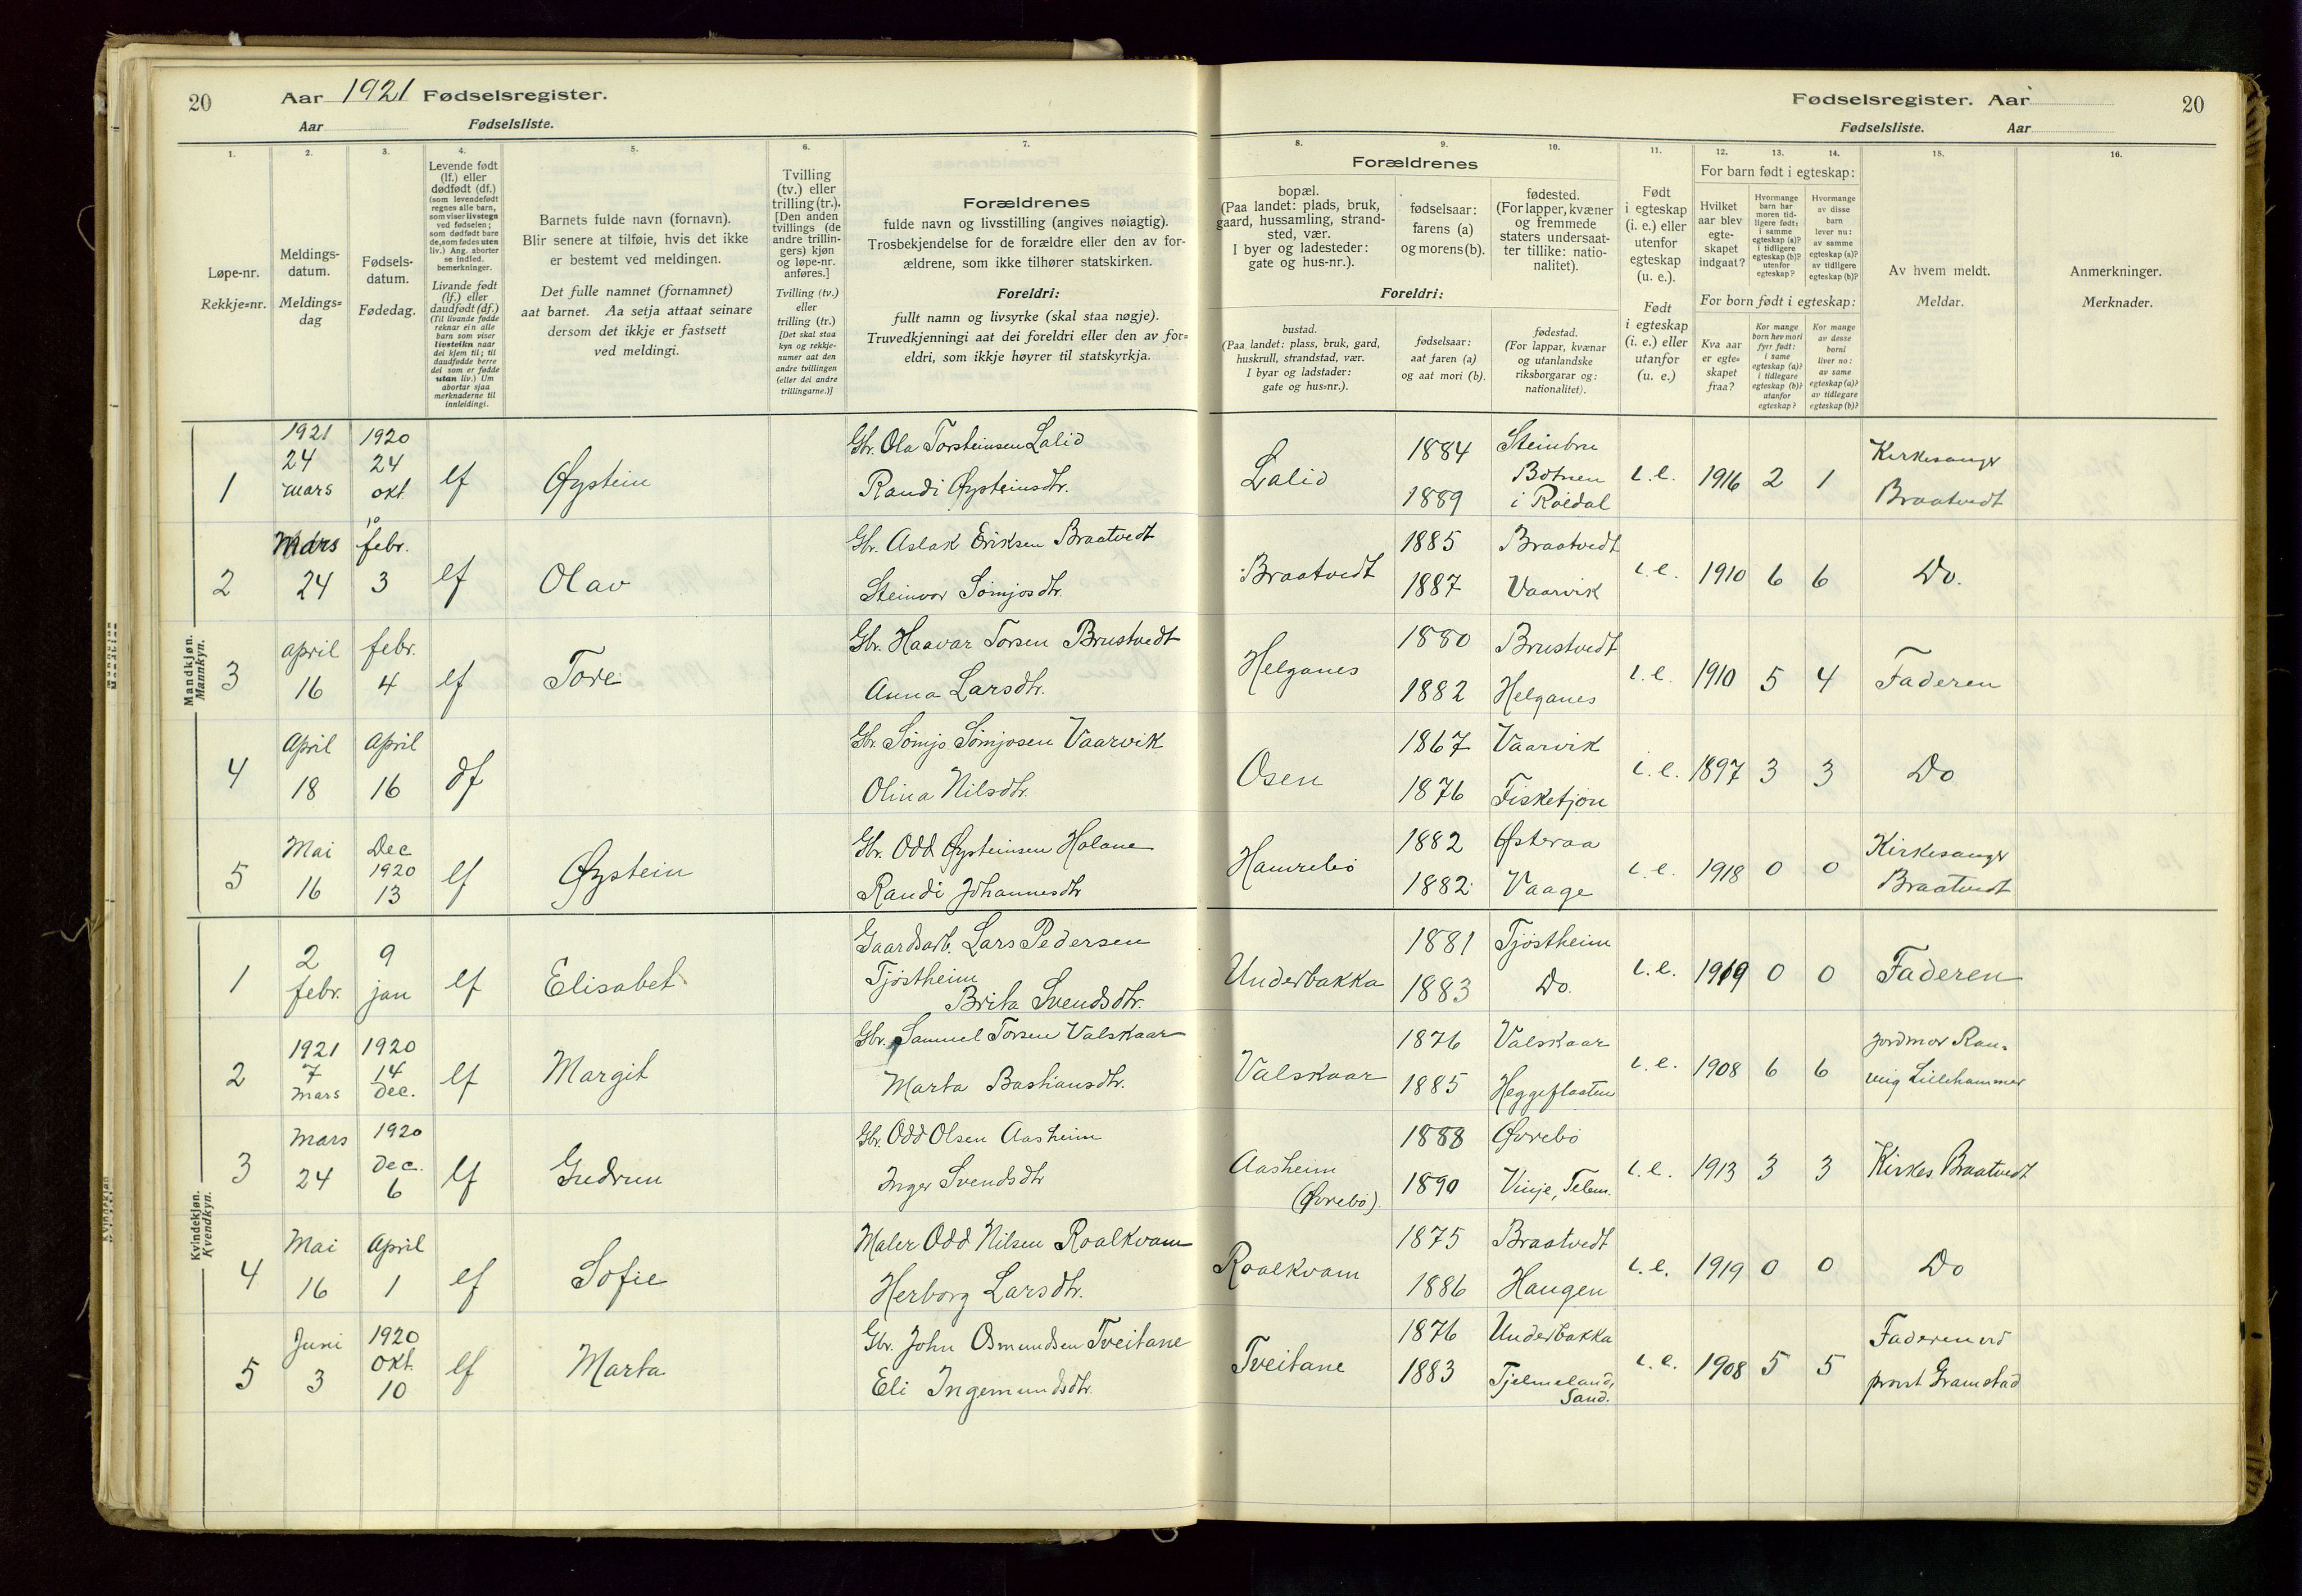 20 Aar 1921 Fødselsregister.
Aar Fødselsliste.
Fødselsregister. Aar 20
Fødselsliste. Aar
1. 2. 3. 4. 5. 6. 7. 8. 9. 10. 11. 12. 13. 14. 15. 16.
Løpe-nr.
Rekkje=nr.
Meldings-
datum.
Meldings=
dag
Fødsels-
datum.
Fødedag.
Levende født
(lf.) eller
dødfødt (df.)
(som levendefødt
regnes alle barn,
som viser livstegn
ved fødselen;
som dødfødt bare
de, som fødes uten
liv.) Ang. aborter
se indled.
bemerkninger.
Livande født
(lf.) eller
daudfødt (df.)
(Til livande fødde
reknar ein alle
barn som viser
livsteikn naar
dei kjem til; til
daudfødde berre
dei som er fødde
utan liv.) Um
abortar sjaa
merknaderne til
innleidingi.
Barnets fulde navn (fornavn).
Blir senere at tilføie, hvis det ikke
er bestemt ved meldingen.
Det fulle namnet (fornamnet)
aat barnet. Aa setja attaat seinare
dersom det ikkje er fastsett
ved meldingi.
Tvilling
(tv.) eller
trilling (tr.).
[Den anden
tvillings (de
andre trillin-
gers) kjøn
og løpe-nr.
anføres.]
Tvilling (tv.)
eller
trilling (tr.)
[Det skal staa
kyn og rekkje-
numer aat den
andre tvillingen
(eller dei andre
trillingarne.)]
Forældrenes
fulde navn og livsstilling (angives nøiagtig).
Trosbekjendelse for de forældre eller den av for-
ældrene, som ikke tilhører statskirken.
Foreldri:
fullt namn og livsyrke (skal staa nøgje).
Truvedkjenningi aat dei foreldri eller den av for=
eldri, som ikkje høyrer til statskyrkja.
Forældrenes
bopæl.
(Paa landet: plads, bruk,
gaard, hussamling, strand-
sted, vær.
I byer og ladesteder:
gate og hus-nr.).
fødselsaar:
farens (a)
og morens (b).
fødested.
(For lapper, kvæner
og fremmede
staters undersaat-
ter tillike: natio-
nalitet).
Foreldri:
bustad.
(Paa landet: plass, bruk, gard,
huskrull, strandstad, vær.
I byar og ladstader:
gate og hus=nr.).
fødselsaar:
aat faren (a)
og aat mori (b).
fødestad.
(For lappar, kvænar
og utanlandske
riksborgarar og:
nationalitet).
Født
i egteskap
(i. e.) eller
utenfor
egteskap
(u. e.).
Født
i egteskap
(i. e.) eller
utanfor
(u. e.)
For barn født i egteskap:
Hvilket
aar blev
egte-
skapet
indgaat?
Hvormange
barn har
moren tid-
ligere født:
i samme
egteskap (a)?
i tidligere
egteskap (b)?
utenfor
egteskap?
Hvormange
av disse
barn
lever nu:
av samme
egteskap (a)?
av tidligere
egteskap (b)?
For born født i egteskap:
Kva aar
er egte=
skapet
fraa?
Kor mange
born hev mori
fyrr født:
i same
egteskap (a)?
i tidlegare
egteskap (b)?
utanfor
egteskap?
Kor mange
av desse
borni
liver no:
av same
egteskap (a)?
av tidlegare
egteskap (b)?
Av hvem meldt.
Meldar.
Anmerkninger.
Merknader.
Mandkjøn.
Mannkyn.
1 1921 24 mars 1920 24 okt. lf Øystein Gbr. Ola Torsteinsen Lalid
Randi Øysteinsdtr. Lalid 1884 1889 Steinbru
Botnen
i Røldal i. e. 1916 2 1 Kirkesanger
Braatvedt
2 Mars 24 10 febr. 3 lf Olav Gbr. Aslak Eriksen Braatvedt
Steinvor Sømjosdtr. Braatvedt 1885 1887 Braatvedt
Vaarvik i. e. 1910 6 6 Do.
3 april 16 febr. 4 lf Tore Gbr. Haavar Torsen Brustvedt
Anna Larsdtr. Helganes 1880 1882 Brustvedt
Helganes i. e. 1910 5 4 Faderen
4 April 18 April 16 df Gbr. Sømjo Sømjosen Vaarvik
Olina Nilsdtr. Osen 1867 1876 Vaarvik
Fisketjøn i. e. 1897 3 3 Do
5 Mai 16 Dec 1920 13 lf Øystein Gbr. Odd Øysteinsen Halane
Randi Johannesdtr Hamrebø 1882 1882 Østeraa
Vaage i. e. 1918 0 0 Kirkesanger
Braatvedt
Kvindekjøn.
Kvendkyn.
1 2 febr. 9 jan lf Elisabet Gaardsarb. Lars Pedersen
Tjøstheim
Brita Svendsdtr. Underbakka 1881 1883 Tjøstheim
Do. i. e. 1919 0 0 Faderen
2 1921 7 mars 1920 14 Dec. lf Margit Gbr. Samuel Torsen Valskaar
Marta Bastiansdtr. Valskaar 1876 1885 Valskaar
Heggeflaaten i. e. 1908 6 6 Jordmor Ran=
veig Lillehammer
3 Mars 24 1920 Dec. 6 lf Gudrun Gbr. Odd Olsen Aasheim
Inger Svendsdtr Aasheim
(Øvrebø). 1888 1890 Øvrebø
Vinje, Telem. i. e. 1913 3 3 Kirkes. Braatvedt
4 Mai 16 April 1 lf Sofie Maler Odd Nilsen Roalkvam
Herborg Larsdtr. Roalkvam 1875 1886 Braatvedt
Haugen i. e. 1919 0 0 Do
5 Juni 3 1920 okt. 10 lf Marta Gbr. John Osmundsen Tveitane
Eli Ingemundsdtr. Tveitane 1876 1883 Underbakka
Tjelmeland,
Sand. i. e. 1908 5 5 Faderen ved
prost Gramstad